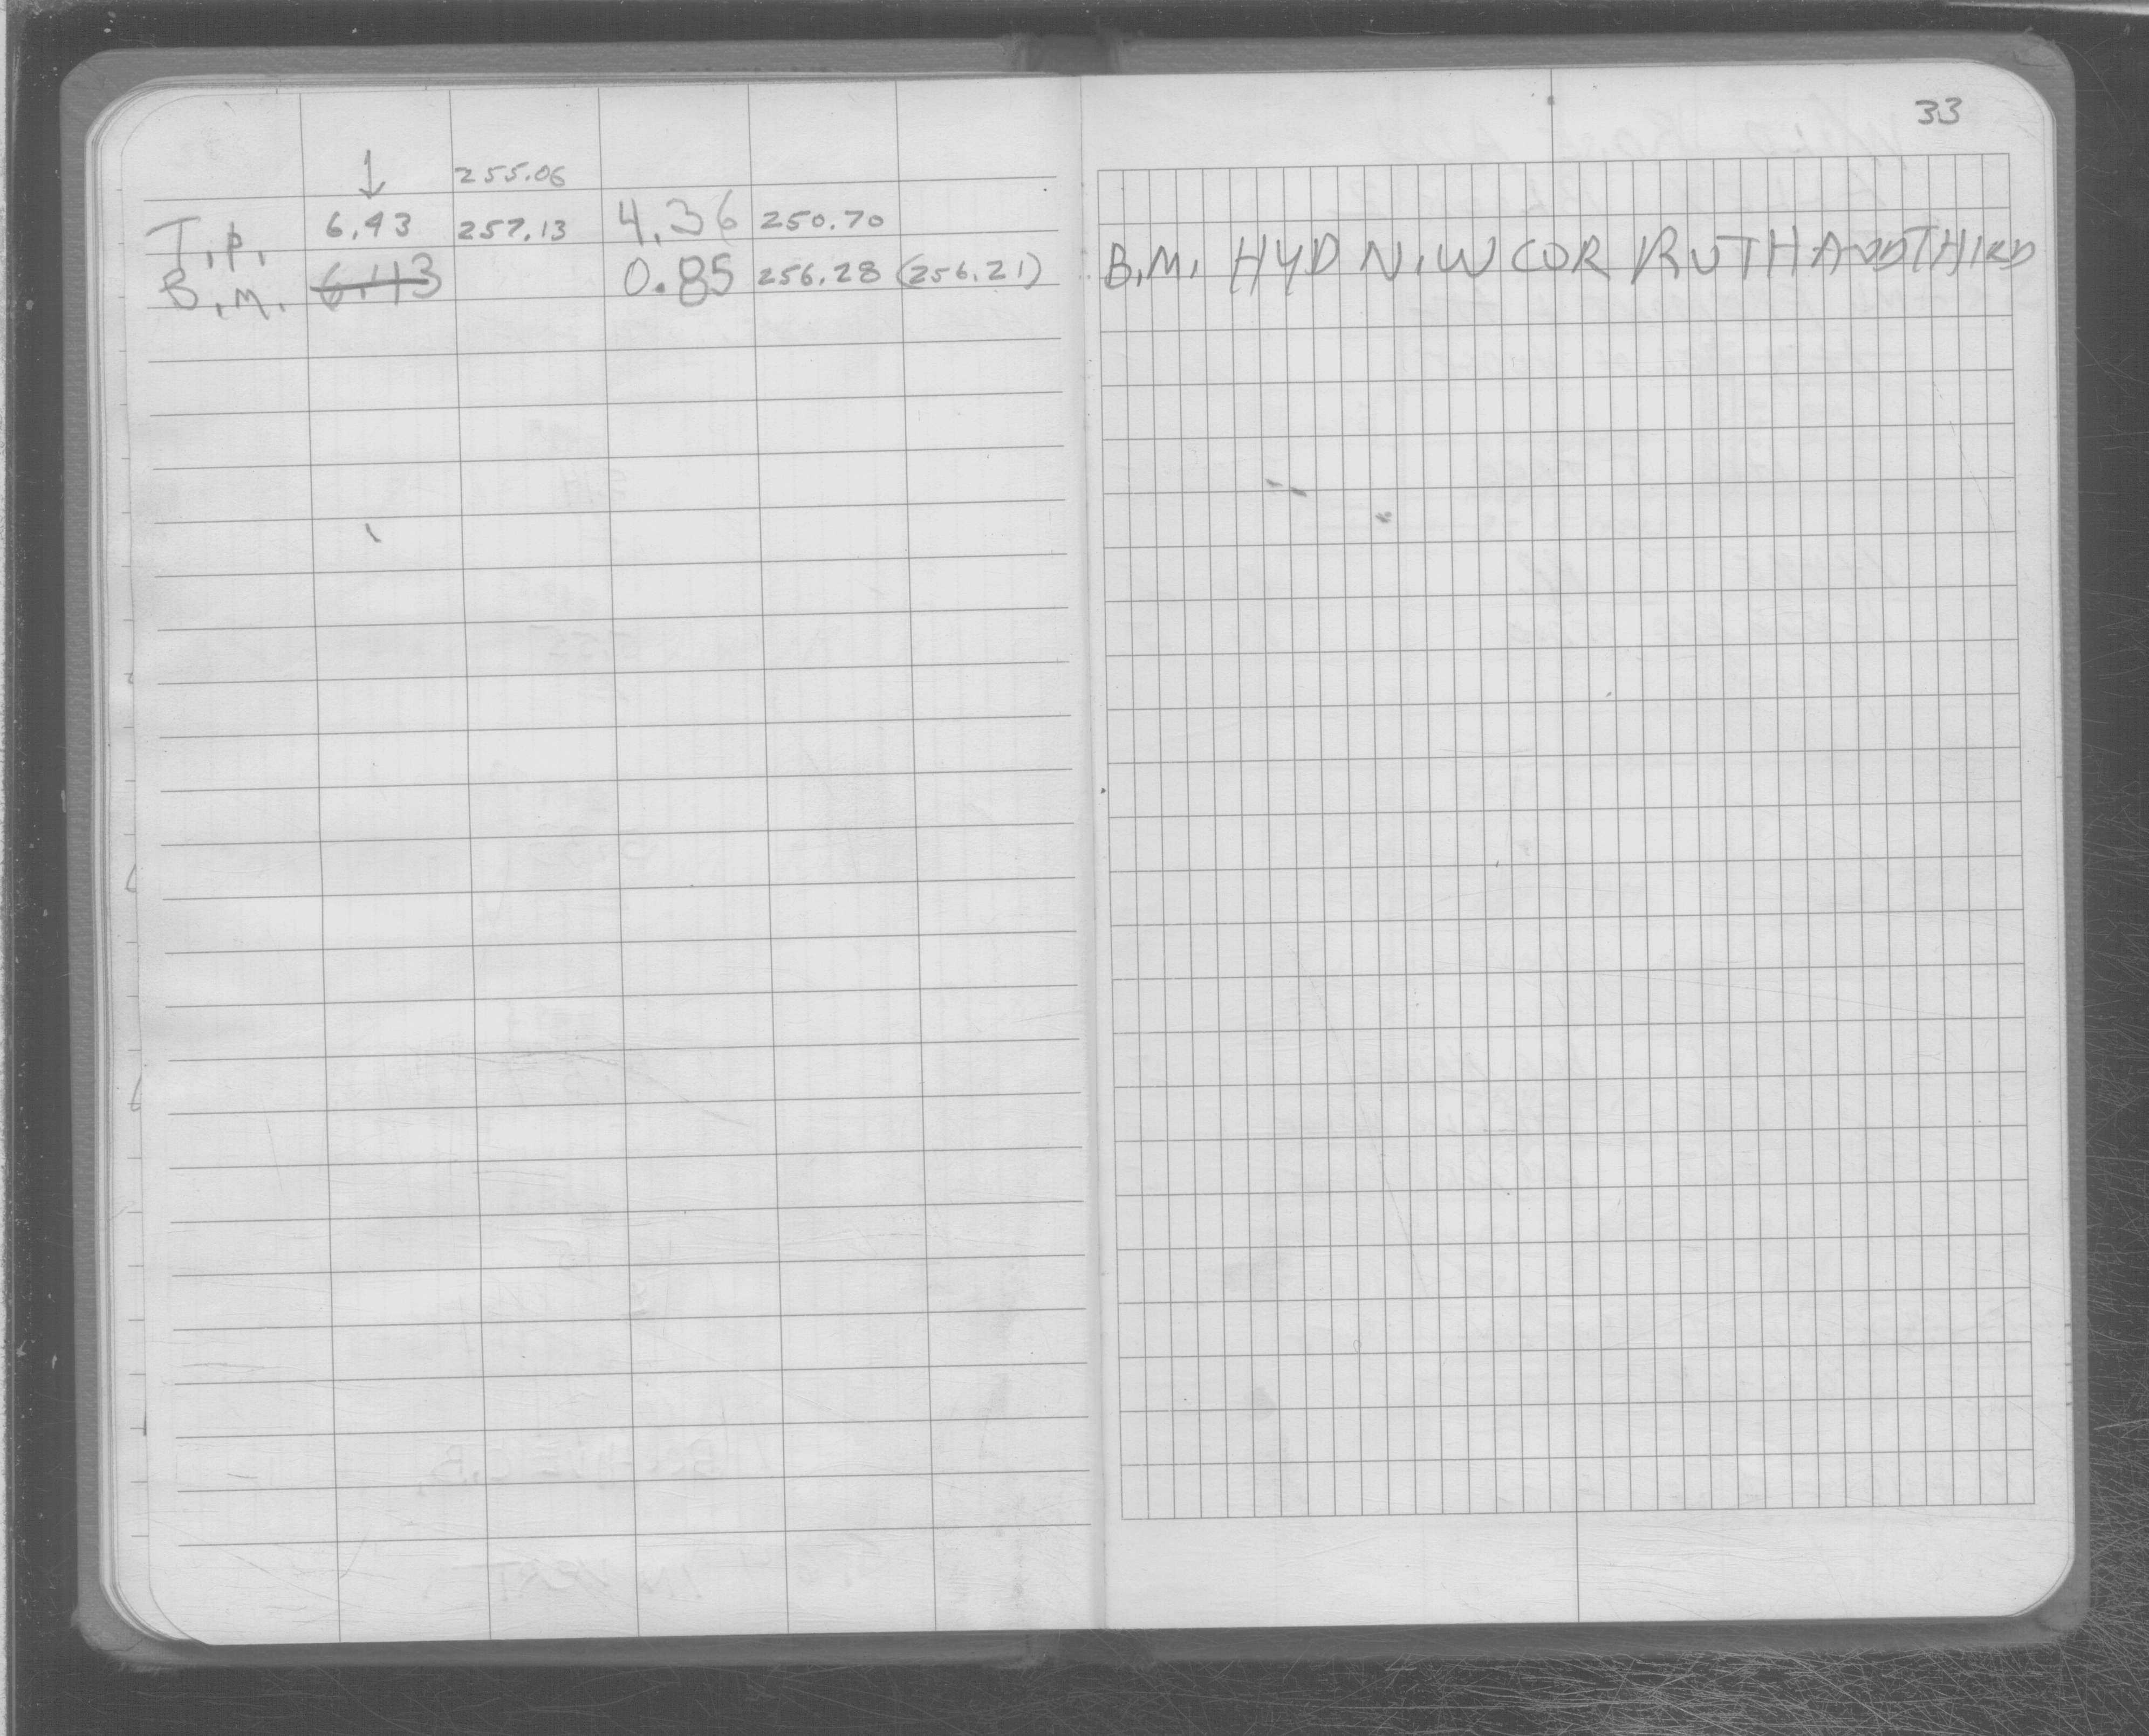 33
↓ 255.06
T.P. 6.43 257.13 4.36 250.70
B.M. 6.43 0.85 256.28 (256.21) B.M. HYD N.W COR RUTH AND THIRD